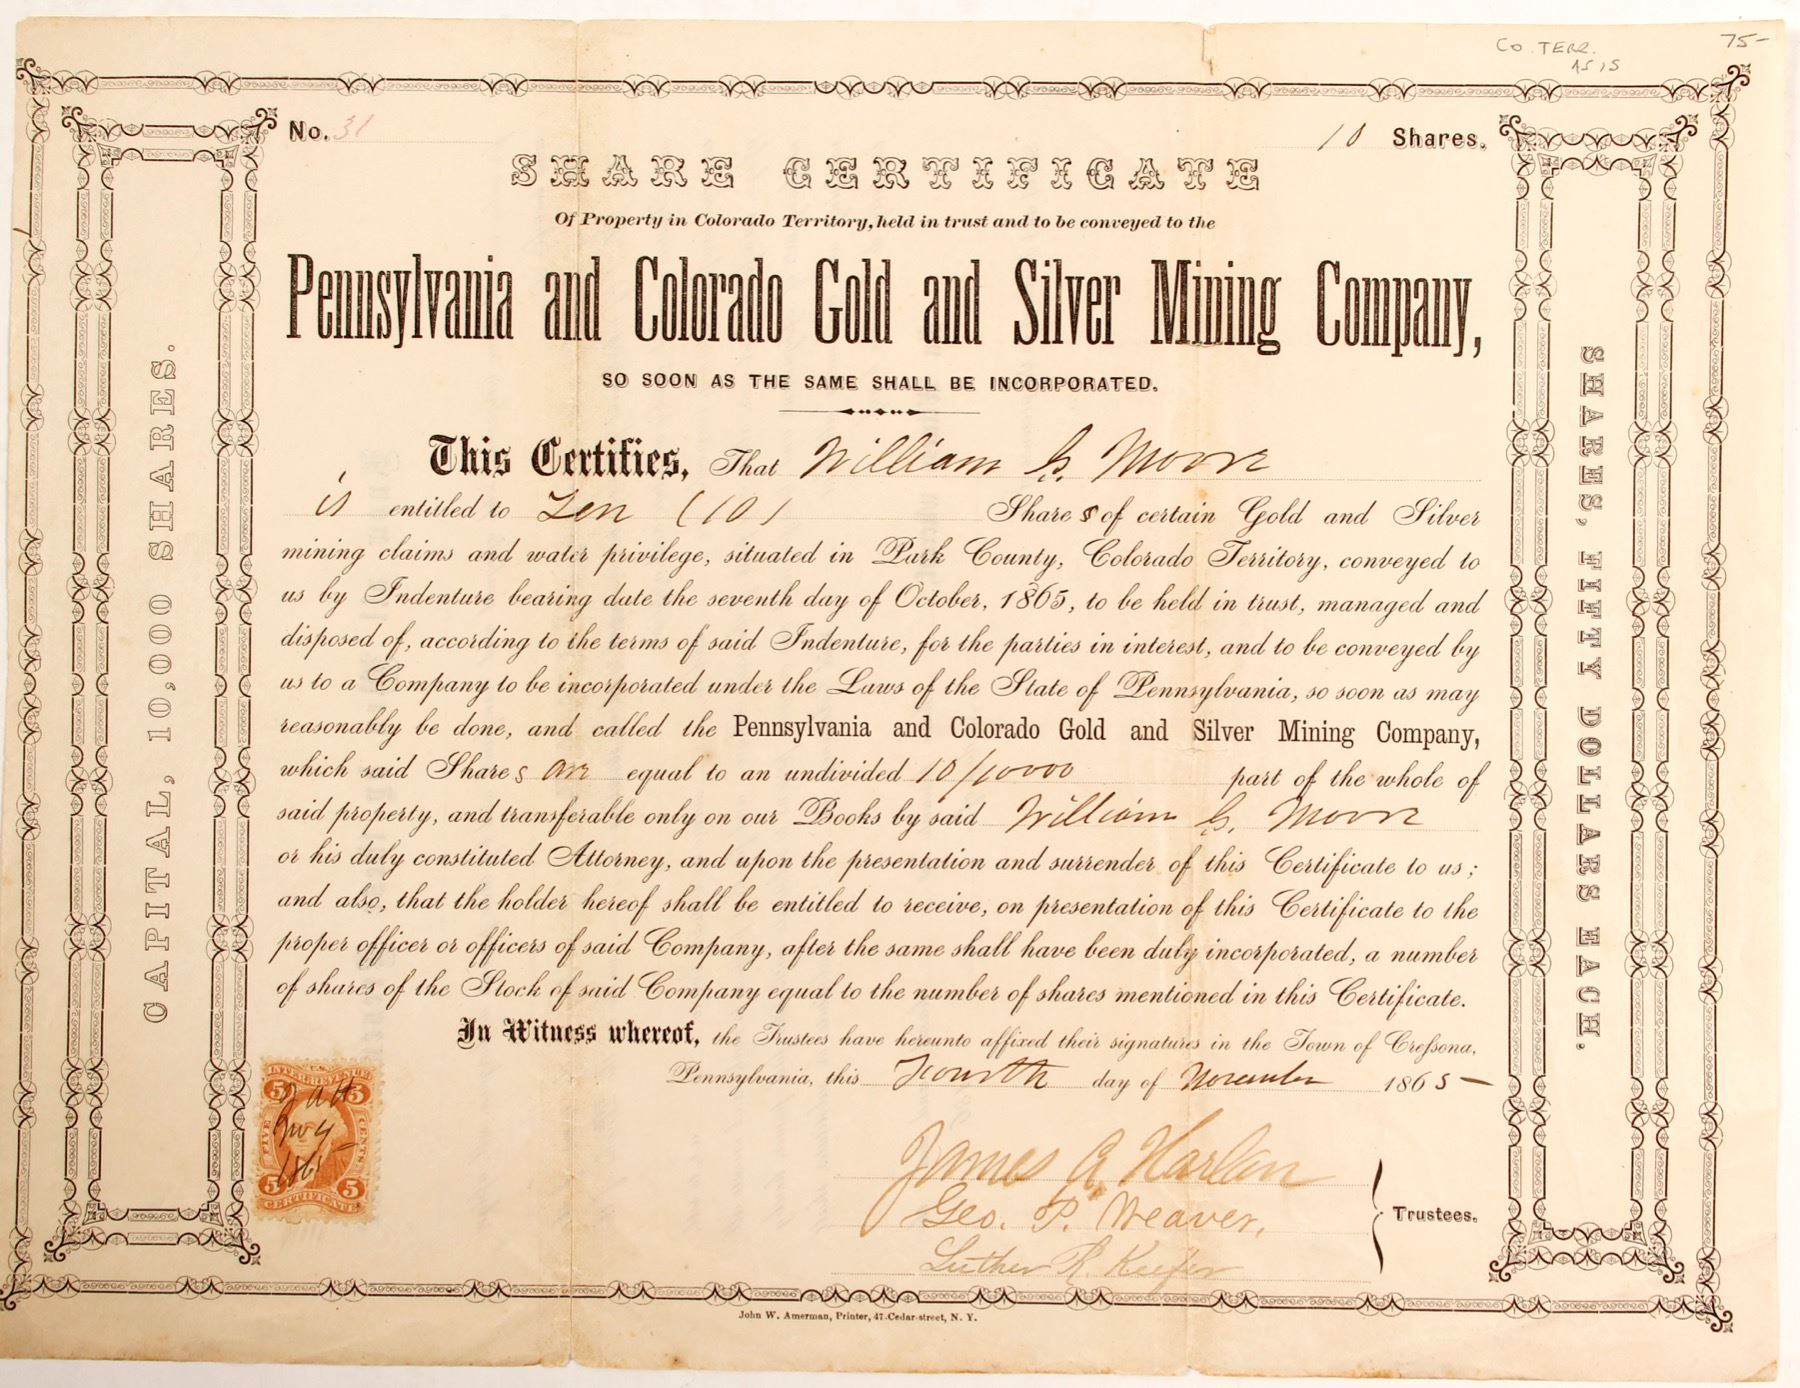 CO. TERR. 75-
AS IS
No. 31 10 Shares.
SHARE CERTIFICATE
Of Property in Colorado Territory, held in trust and to be conveyed to the
Pennsylvania and Colorado Gold and Silver Mining Company,
SO SOON AS THE SAME SHALL BE INCORPORATED.
This Certifies, That William G. Moore
is entitled to Ten (10) Shares of certain Gold and Silver
mining claims and water privilege, situated in Park County, Colorado Territory, conveyed to
us by Indenture bearing date the seventh day of October, 1865, to be held in trust, managed and
disposed of, according to the terms of said Indenture, for the parties in interest, and to be conveyed by
us to a Company to be incorporated under the Laws of the State of Pennsylvania, so soon as may
reasonably be done, and called the Pennsylvania and Colorado Gold and Silver Mining Company,
which said Shares are equal to an undivided 10/10000 part of the whole of
said property, and transferable only on our Books by said William G. Moore
or his duly constituted Attorney, and upon the presentation and surrender of this Certificate to us;
and also, that the holder hereof shall be entitled to receive, on presentation of this Certificate to the
proper officer or officers of said Company, after the same shall have been duly incorporated, a number
of shares of the Stock of said Company equal to the number of shares mentioned in this Certificate.
In Witness whereof, the Trustees have hereunto affixed their signatures in the Town of Cressona,
Pennsylvania, this Fourth day of November 1865-
James A. Harlan
Geo. P. Weaver.
Luther R. Keefer
Trustees.
CAPITAL, 10,000 SHARES.
SHARES, FIFTY DOLLARS EACH.
U.S.
INTER. REVENUE
5 5
FIVE CENTS
JAH
Nov 4
1865
5 5
CERTIFICATE
John W. Amerman, Printer, 47 Cedar-street, N. Y.